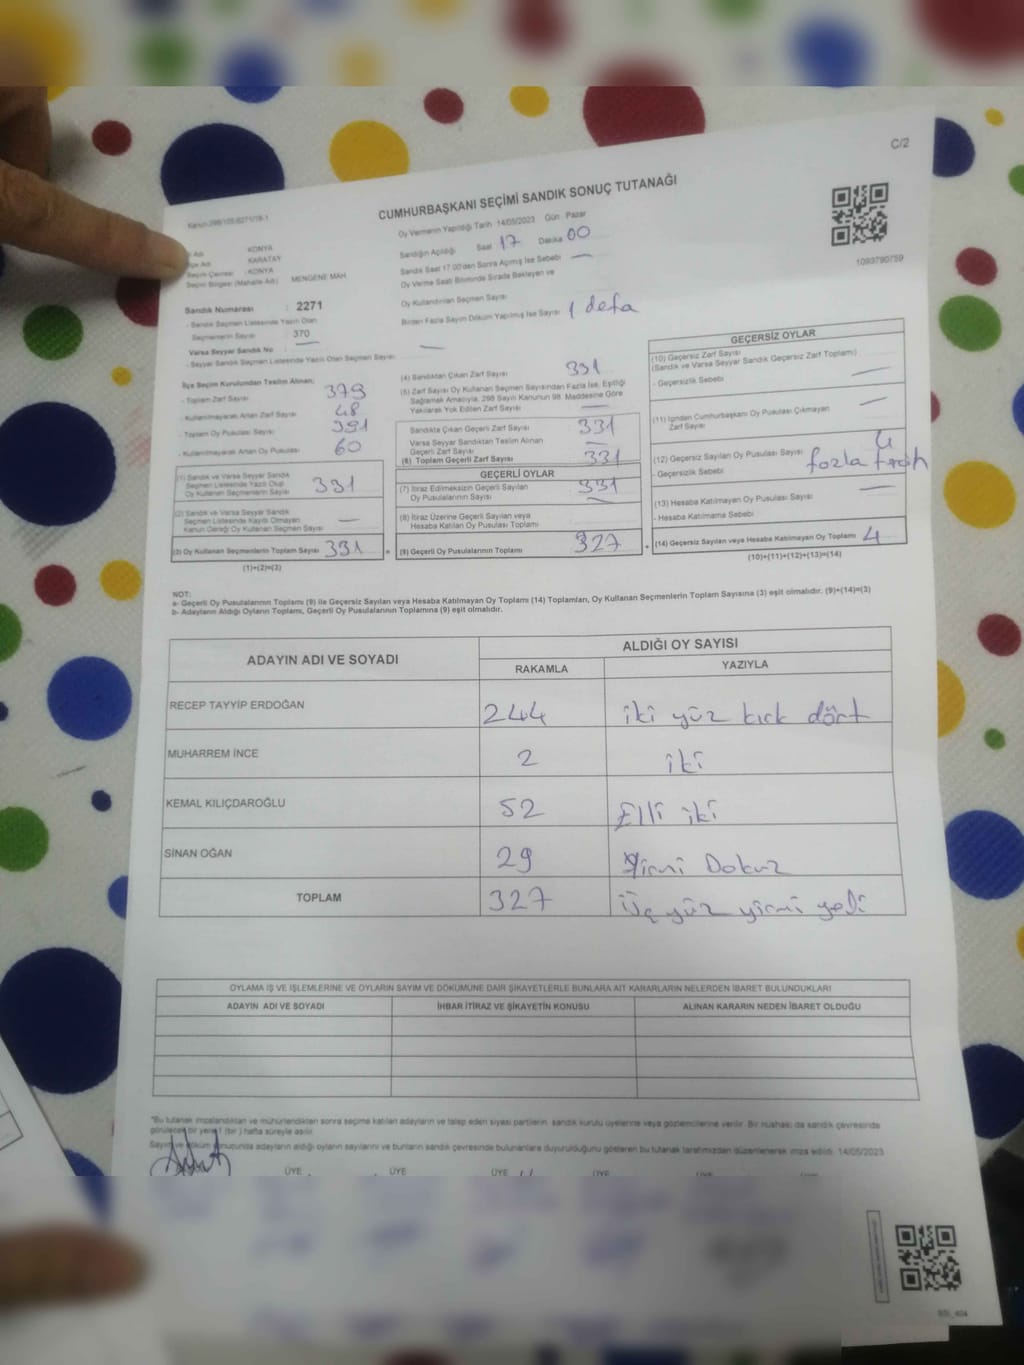 C/2
CUMHURBAŞKANI SEÇİMİ SANDIK SONUÇ TUTANAĞI
Oy Vermenin Yapıldığı Tarih 14/05/2023 Gün Pazar
Sandığın Açıldığı Saat 17 Dakika 00
Sandık Saat 17.00'den Sonra Açılmış İse Sebebi —
Oy Verme Saati Bitiminde Sırada Bekleyen ve
Oy Kullandırılan Seçmen Sayısı
Birden Fazla Sayım Döküm Yapılmış İse Sayısı 1 defa
1093790759
İl Adı KONYA
İlçe Adı KARATAY
Seçim Çevresi : KONYA
Seçim Bölgesi (Mahalle Adı) : MENGENE MAH
Sandık Numarası : 2271
- Sandık Seçmen Listesinde Yazılı Olan
Seçmenlerin Sayısı : 370
Varsa Seyyar Sandık No : —
- Seyyar Sandık Seçmen Listesinde Yazılı Olan Seçmen Sayısı: —
İlçe Seçim Kurulundan Teslim Alınan;
- Toplam Zarf Sayısı 379
- Kullanılmayarak Artan Zarf Sayısı 48
- Toplam Oy Pusulası Sayısı 391
- Kullanılmayarak Artan Oy Pusulası 60
(1) Sandık ve Varsa Seyyar Sandık
Seçmen Listesinde Yazılı Olup
Oy Kullanan Seçmenlerin Sayısı 331
(2) Sandık ve Varsa Seyyar Sandık
Seçmen Listesinde Kayıtlı Olmayan
Kanun Gereği Oy Kullanan Seçmen Sayısı —
(3) Oy Kullanan Seçmenlerin Toplam Sayısı 331
(1)+(2)=(3)
(4) Sandıktan Çıkan Zarf Sayısı 331
(5) Zarf Sayısı Oy Kullanan Seçmen Sayısından Fazla İse, Eşitliği
Sağlamak Amacıyla, 298 Sayılı Kanunun 98. Maddesine Göre
Yakılarak Yok Edilen Zarf Sayısı —
Sandıkta Çıkan Geçerli Zarf Sayısı 331
Varsa Seyyar Sandıktan Teslim Alınan
Geçerli Zarf Sayısı —
(6) Toplam Geçerli Zarf Sayısı 331
GEÇERLİ OYLAR
(7) İtiraz Edilmeksizin Geçerli Sayılan
Oy Pusulalarının Sayısı 331
(8) İtiraz Üzerine Geçerli Sayılan veya
Hesaba Katılan Oy Pusulası Toplamı
(9) Geçerli Oy Pusulalarının Toplamı 327
GEÇERSİZ OYLAR
(10) Geçersiz Zarf Sayısı
(Sandık ve Varsa Seyyar Sandık Geçersiz Zarf Toplamı)
- Geçersizlik Sebebi —
(11) İçinden Cumhurbaşkanı Oy Pusulası Çıkmayan
Zarf Sayısı —
(12) Geçersiz Sayılan Oy Pusulası Sayısı 4
- Geçersizlik Sebebi fazla
(13) Hesaba Katılmayan Oy Pusulası Sayısı —
- Hesaba Katılmama Sebebi
(14) Geçersiz Sayılan veya Hesaba Katılmayan Oy Toplamı 4
(10)+(11)+(12)+(13)=(14)
NOT:
a- Geçerli Oy Pusulalarının Toplamı (9) ile Geçersiz Sayılan veya Hesaba Katılmayan Oy Toplamı (14) Toplamları, Oy Kullanan Seçmenlerin Toplam Sayısına (3) eşit olmalıdır. (9)+(14)=(3)
b- Adayların Aldığı Oyların Toplamı, Geçerli Oy Pusulalarının Toplamına (9) eşit olmalıdır.
ADAYIN ADI VE SOYADI ALDIĞI OY SAYISI
RAKAMLA YAZIYLA
RECEP TAYYİP ERDOĞAN 244 iki yüz kırk dört
MUHARREM İNCE 2 iki
KEMAL KILIÇDAROĞLU 52 Elli iki
SİNAN OĞAN 29 Yirmi Dokuz
TOPLAM 327 Üç yüz yirmi yedi
OYLAMA İŞ VE İŞLEMLERİNE VE OYLARIN SAYIM VE DÖKÜMÜNE DAİR ŞİKAYETLERLE BUNLARA AİT KARARLARIN NELERDEN İBARET BULUNDUKLARI
ADAYIN ADI VE SOYADI İHBAR İTİRAZ VE ŞİKAYETİN KONUSU ALINAN KARARIN NEDEN İBARET OLDUĞU
*Bu tutanak imzalandıktan ve mühürlendikten sonra seçime katılan adayların ve talep eden siyasi partilerin sandık kurulu üyelerine veya gözlemcilerine verilir. Bir nüshası da sandık çevresinde
görülecek bir yere 1 (bir) hafta süreyle asılır.
Sayım ve döküm sonucunda adayların aldığı oyların sayılarını ve bunların sandık çevresinde bulunanlara duyurulduğunu gösteren bu tutanak tarafımızdan düzenlenerek imza edildi. 14/05/2023
ÜYE ÜYE ÜYE ÜYE ÜYE